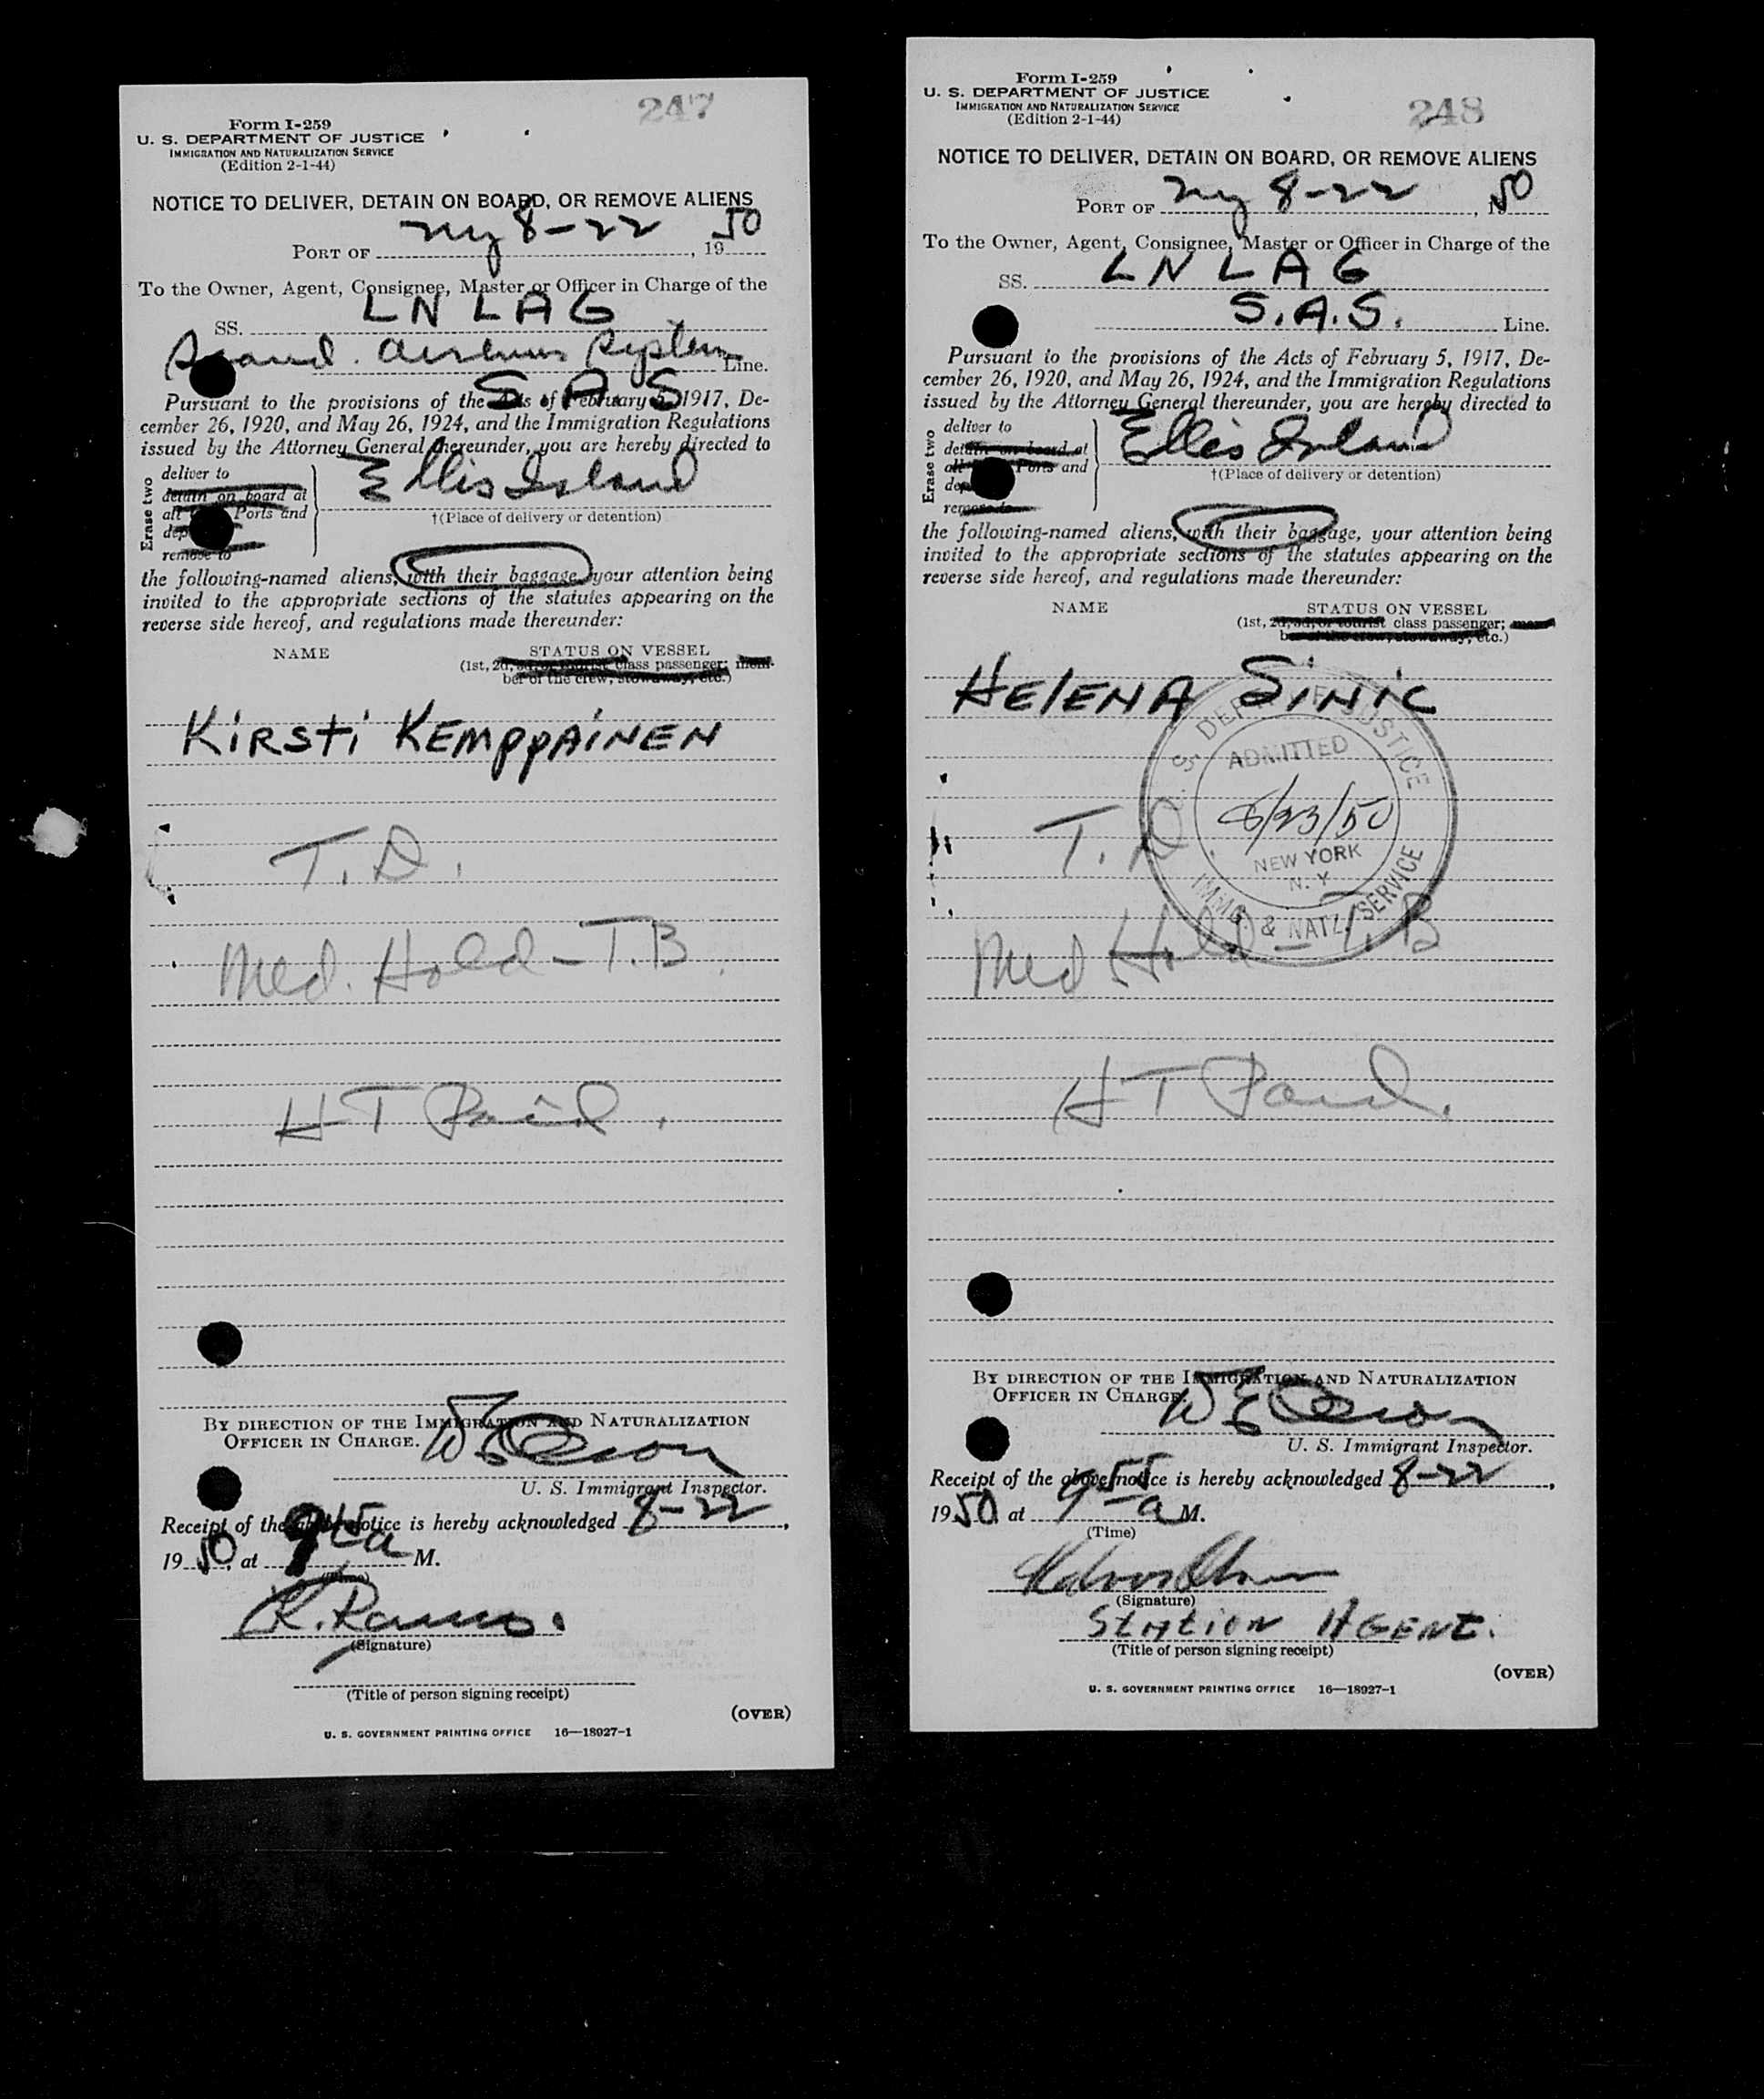 247
Form I-259
U. S. DEPARTMENT OF JUSTICE
IMMIGRATION AND NATURALIZATION SERVICE
(Edition 2-1-44)
NOTICE TO DELIVER, DETAIN ON BOARD, OR REMOVE ALIENS
PORT OF NY 8-22, 1950
To the Owner, Agent, Consignee, Master or Officer in Charge of the
SS. LN LAG
Scand. Airlines System Line.
S A S
Pursuant to the provisions of the Acts of February 5, 1917, De-
cember 26, 1920, and May 26, 1924, and the Immigration Regulations
issued by the Attorney General thereunder, you are hereby directed to
Erase two
deliver to
detain on board at
all Ports and
dep
remove to
Ellis Island
†(Place of delivery or detention)
the following-named aliens, with their baggage, your attention being
invited to the appropriate sections of the statutes appearing on the
reverse side hereof, and regulations made thereunder:
NAME STATUS ON VESSEL
(1st, 2d, 3d, or tourist class passenger; mem-
ber of the crew, stowaway, etc.)
KiRSti KEMPPAiNEN
T.D.
Med. Hold - T.B.
HT Paid.
BY DIRECTION OF THE IMMIGRATION AND NATURALIZATION
OFFICER IN CHARGE.
U. S. Immigrant Inspector.
Receipt of the above notice is hereby acknowledged 8-22,
1950, at a M.
(Time)
(Signature)
(Title of person signing receipt)
(OVER)
U. S. GOVERNMENT PRINTING OFFICE 16—18927-1
248
Form I-259
U. S. DEPARTMENT OF JUSTICE
IMMIGRATION AND NATURALIZATION SERVICE
(Edition 2-1-44)
NOTICE TO DELIVER, DETAIN ON BOARD, OR REMOVE ALIENS
PORT OF NY 8-22, 1950
To the Owner, Agent, Consignee, Master or Officer in Charge of the
SS. LN LAG
S.A.S. Line.
Pursuant to the provisions of the Acts of February 5, 1917, De-
cember 26, 1920, and May 26, 1924, and the Immigration Regulations
issued by the Attorney General thereunder, you are hereby directed to
Erase two
deliver to
detain on board at
all Ports and
dep
remove to
Ellis Island
†(Place of delivery or detention)
the following-named aliens, with their baggage, your attention being
invited to the appropriate sections of the statutes appearing on the
reverse side hereof, and regulations made thereunder:
NAME STATUS ON VESSEL
(1st, 2d, 3d, or tourist class passenger; mem-
ber of the crew, stowaway, etc.)
HElENA SiNiC
U. S. DEPT. OF JUSTICE
ADMITTED
8/23/50
NEW YORK
N. Y.
IMMG. & NATZ. SERVICE
T.D.
Med Hold - T.B
HT Paid.
BY DIRECTION OF THE IMMIGRATION AND NATURALIZATION
OFFICER IN CHARGE.
U. S. Immigrant Inspector.
Receipt of the above notice is hereby acknowledged 8-22,
1950, at 955 a M.
(Time)
(Signature)
StAtiON AGENt.
(Title of person signing receipt)
(OVER)
U. S. GOVERNMENT PRINTING OFFICE 16—18927-1